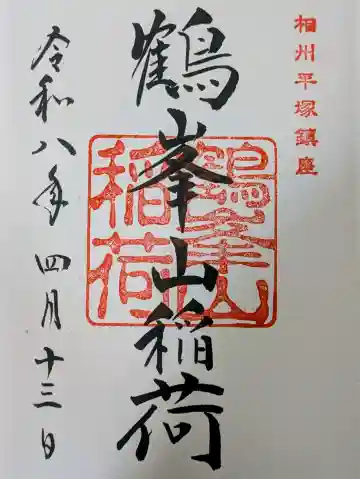 相州平塚鎮座
鶴峯山稲荷
鶴峯山
稲荷
令和八年四月十三日